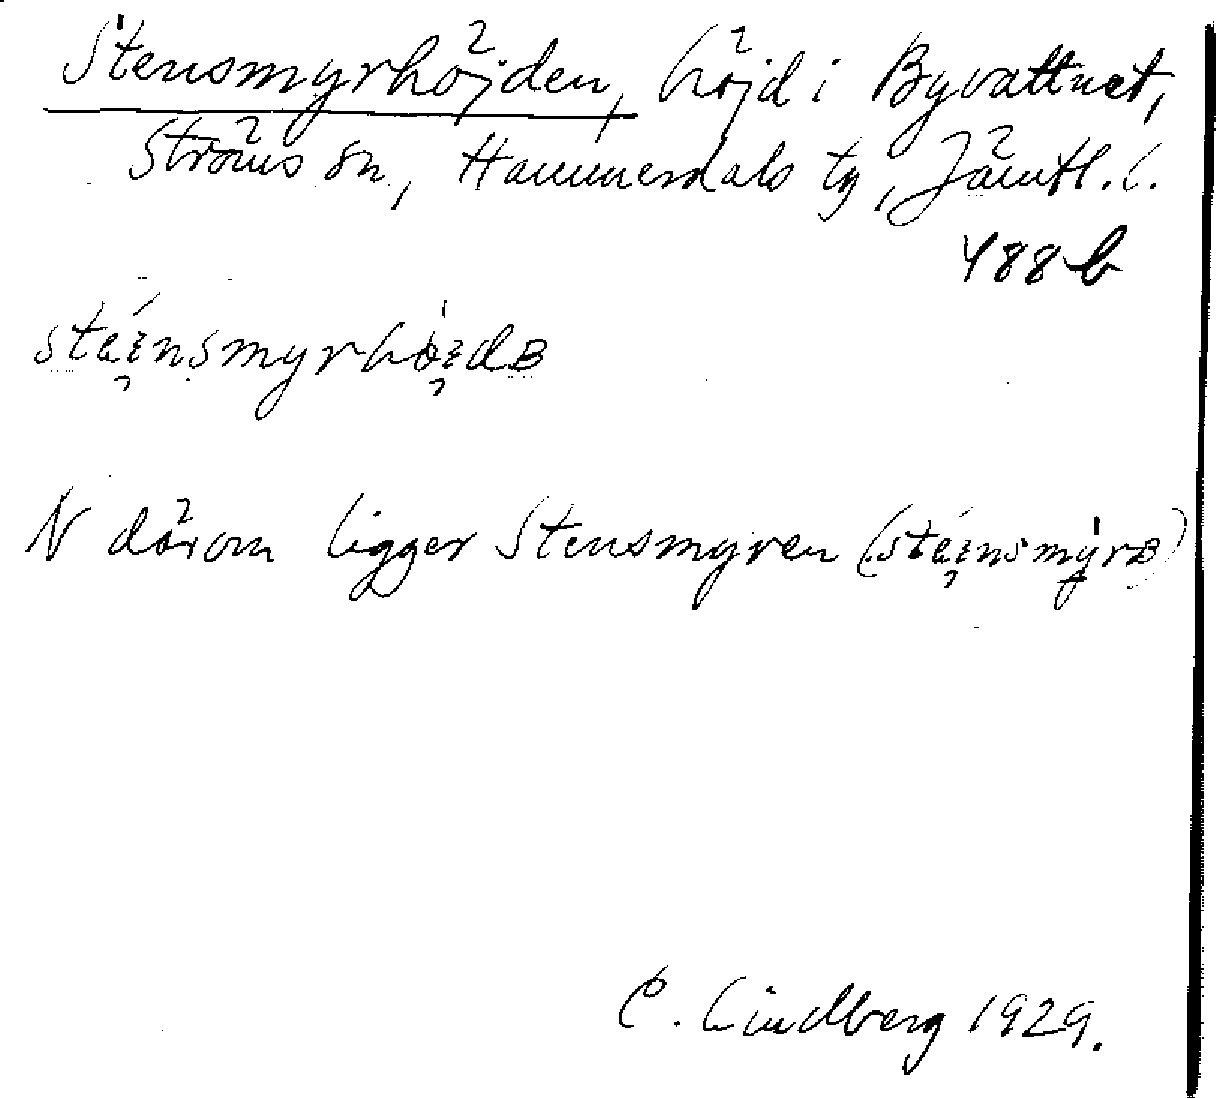 Stensmyrhöjden, höjd i Byvattnet,
Ströms sn, Hammerdals tg, Jämtl. l.
488 b
N därom ligger Stensmyren
C. Lindberg 1929.